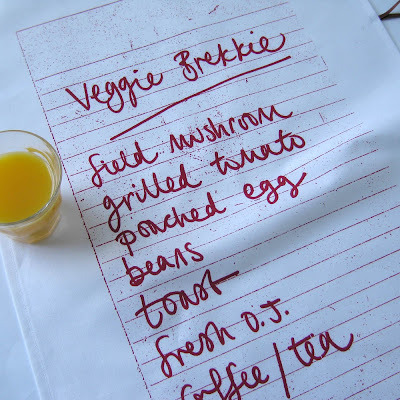 Veggie Brekkie
field mushroom
grilled tomato
poached egg
beans
toast
fresh O.J.
coffee/tea